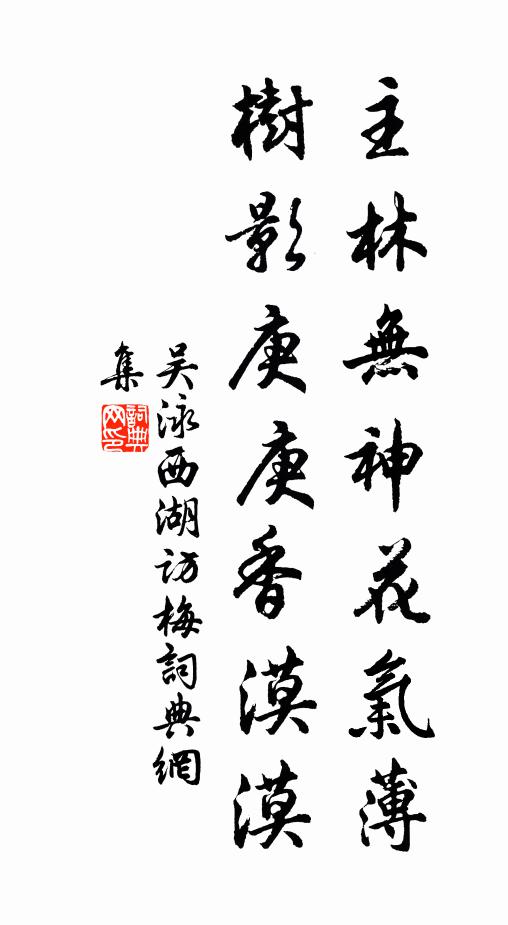 主林無神花氣薄
樹影庚庚香漠漠
吴泳西湖访梅詞典網
集
詞典网印